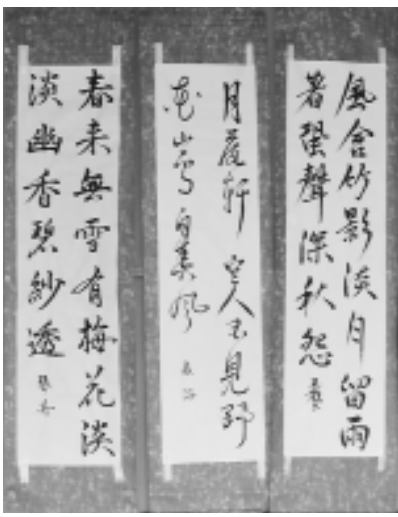 風含竹影淡月留雨
著蛩聲深秋怨
月軒空人不見野
花山鳥自風
春来無雪有梅花淡
淡幽香碧紗透